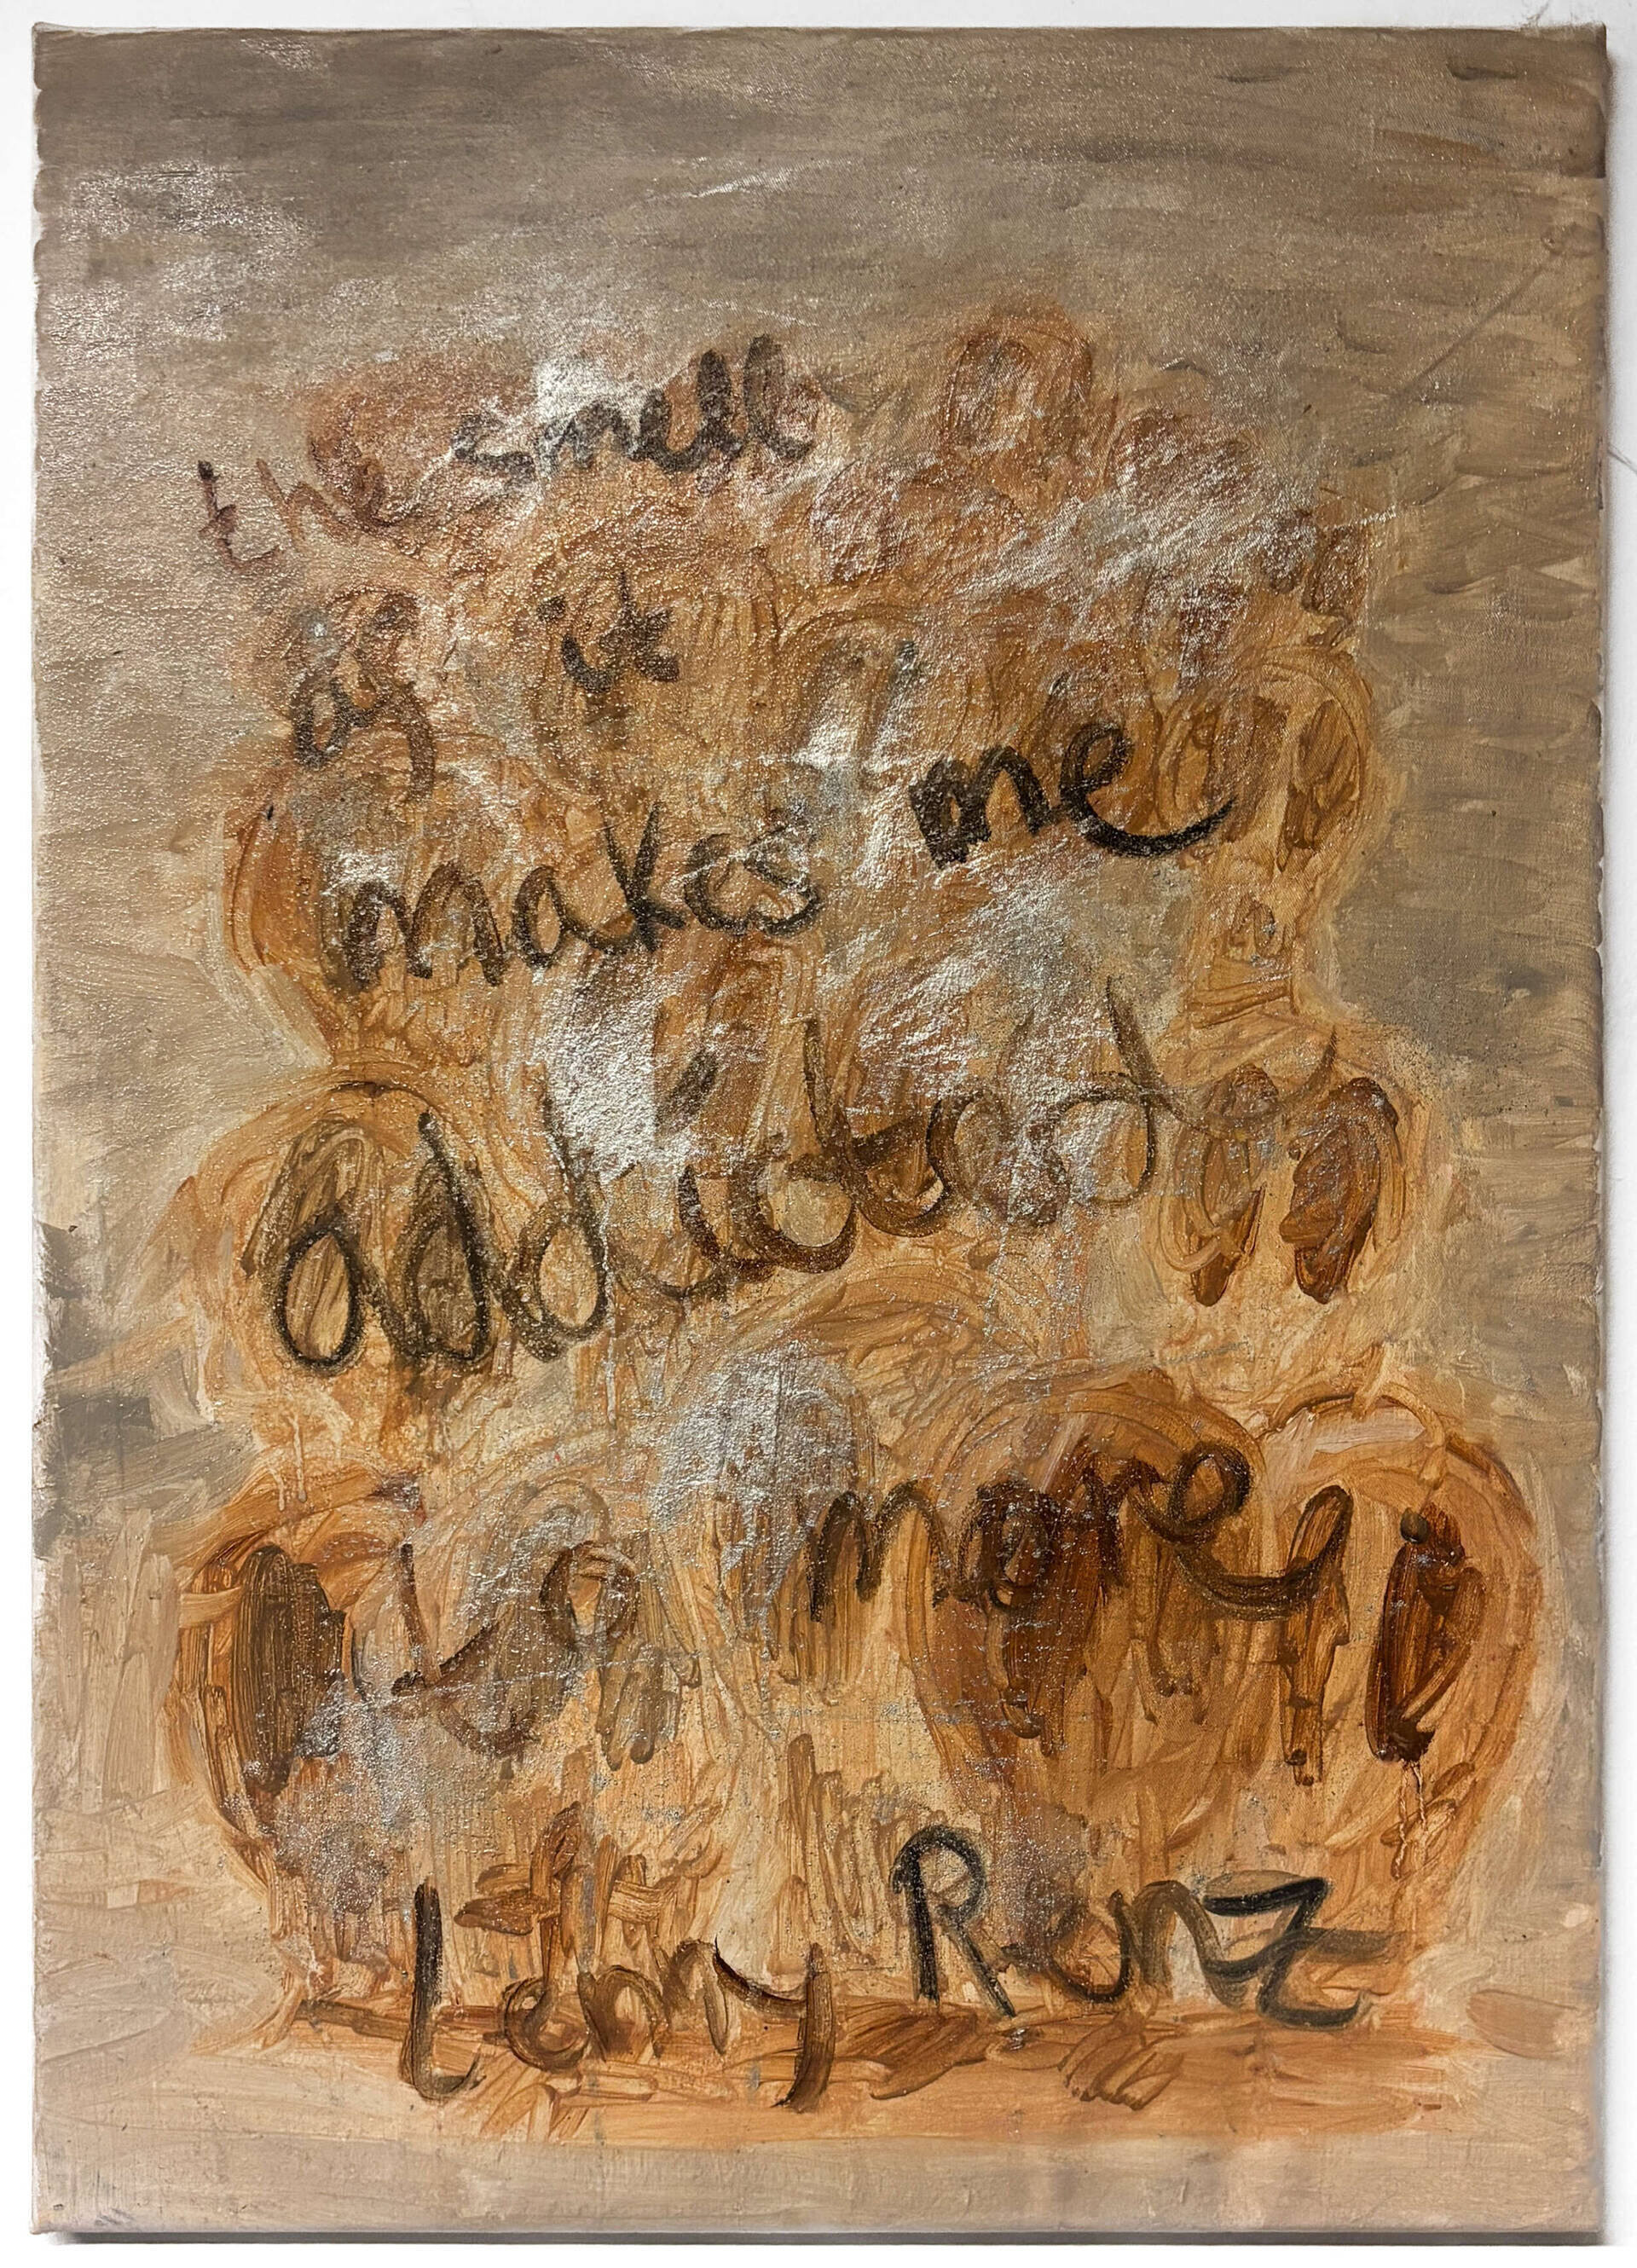 the smell
of it
makes me
addicted
to more
Lanny Renz